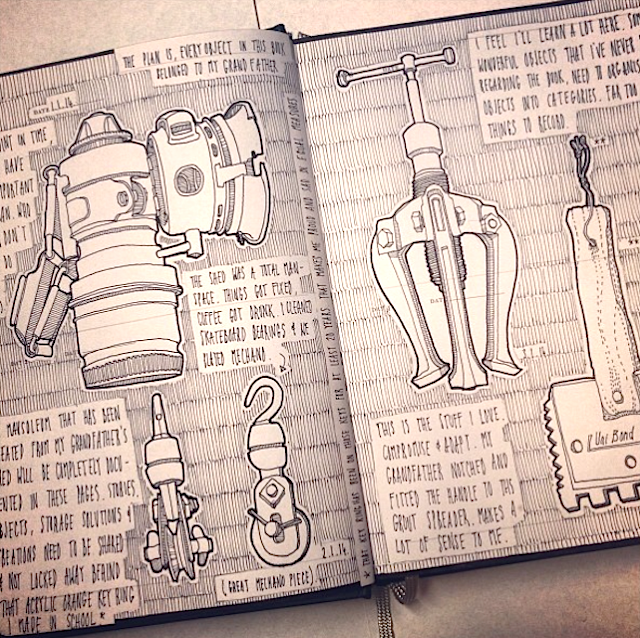 THE PLAN IS, EVERY OBJECT IN THIS BOOK
BELONGED TO MY GRANDFATHER
DATE 1.1.14
POINT IN TIME
HAVE
IMPORTANT
WHO
DON'T
DO
THE SHED WAS A TOTAL MAN-
SPACE. THINGS GOT FIXED.
COFFEE GOT DRUNK. I CLEANED
SKATEBOARD BEARINGS & WE
PLAYED MECHANO.
MAUSOLEUM THAT HAS BEEN
CREATED FROM MY GRANDFATHER'S
SHED WILL BE COMPLETELY DOCU-
MENTED IN THESE PAGES. STORIES,
OBJECTS, STORAGE SOLUTIONS &
CREATIONS NEED TO BE SHARED
& NOT LOCKED AWAY BEHIND
THAT ACRYLIC ORANGE KEY RING
I MADE IN SCHOOL *
2.1.14
(GREAT MECHANO PIECE)
* THAT KEY RING HAS BEEN ON THOSE KEYS FOR AT LEAST 20 YEARS THAT MAKES ME PROUD AND SAD IN EQUAL MEASURES
I FEEL I'LL LEARN A LOT HERE. SO
WONDERFUL OBJECTS THAT I'VE NEVER
REGARDING THE BOOK, NEED TO ORGANISE
OBJECTS INTO CATEGORIES. FAR TOO
THINGS TO RECORD.
**
THIS IS THE STUFF I LOVE.
COMPROMISE & ADAPT. MY
GRANDFATHER NOTCHED AND
FITTED THE HANDLE TO THIS
GROUT SPREADER. MAKES A
LOT OF SENSE TO ME.
Uni Bond